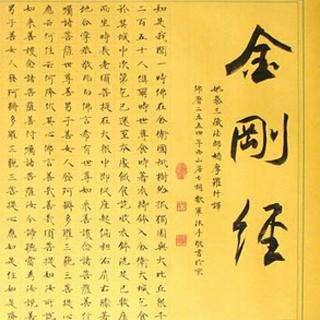 金剛經
姚秦三藏法師鳩摩羅什譯
佛曆二五五四年西山居士胡獻東沐手敬書於京
如是我聞一時佛在舍衛國祇樹給孤獨園與大比丘眾千
二百五十人俱爾時世尊食時著衣持鉢入舍衛大城乞食
於其城中次第乞已還至本處飯食訖收衣鉢洗足已敷座
而坐時長老須菩提在大眾中即從座起偏袒右肩右膝著
地合掌恭敬而白佛言希有世尊如來善護念諸菩薩善付
囑諸菩薩世尊善男子善女人發阿耨多羅三藐三菩提心
應云何住云何降伏其心佛言善哉善哉須菩提如汝所說
如來善護念諸菩薩善付囑諸菩薩汝今諦聽當為汝說善
男子善女人發阿耨多羅三藐三菩提心應如是住如是降